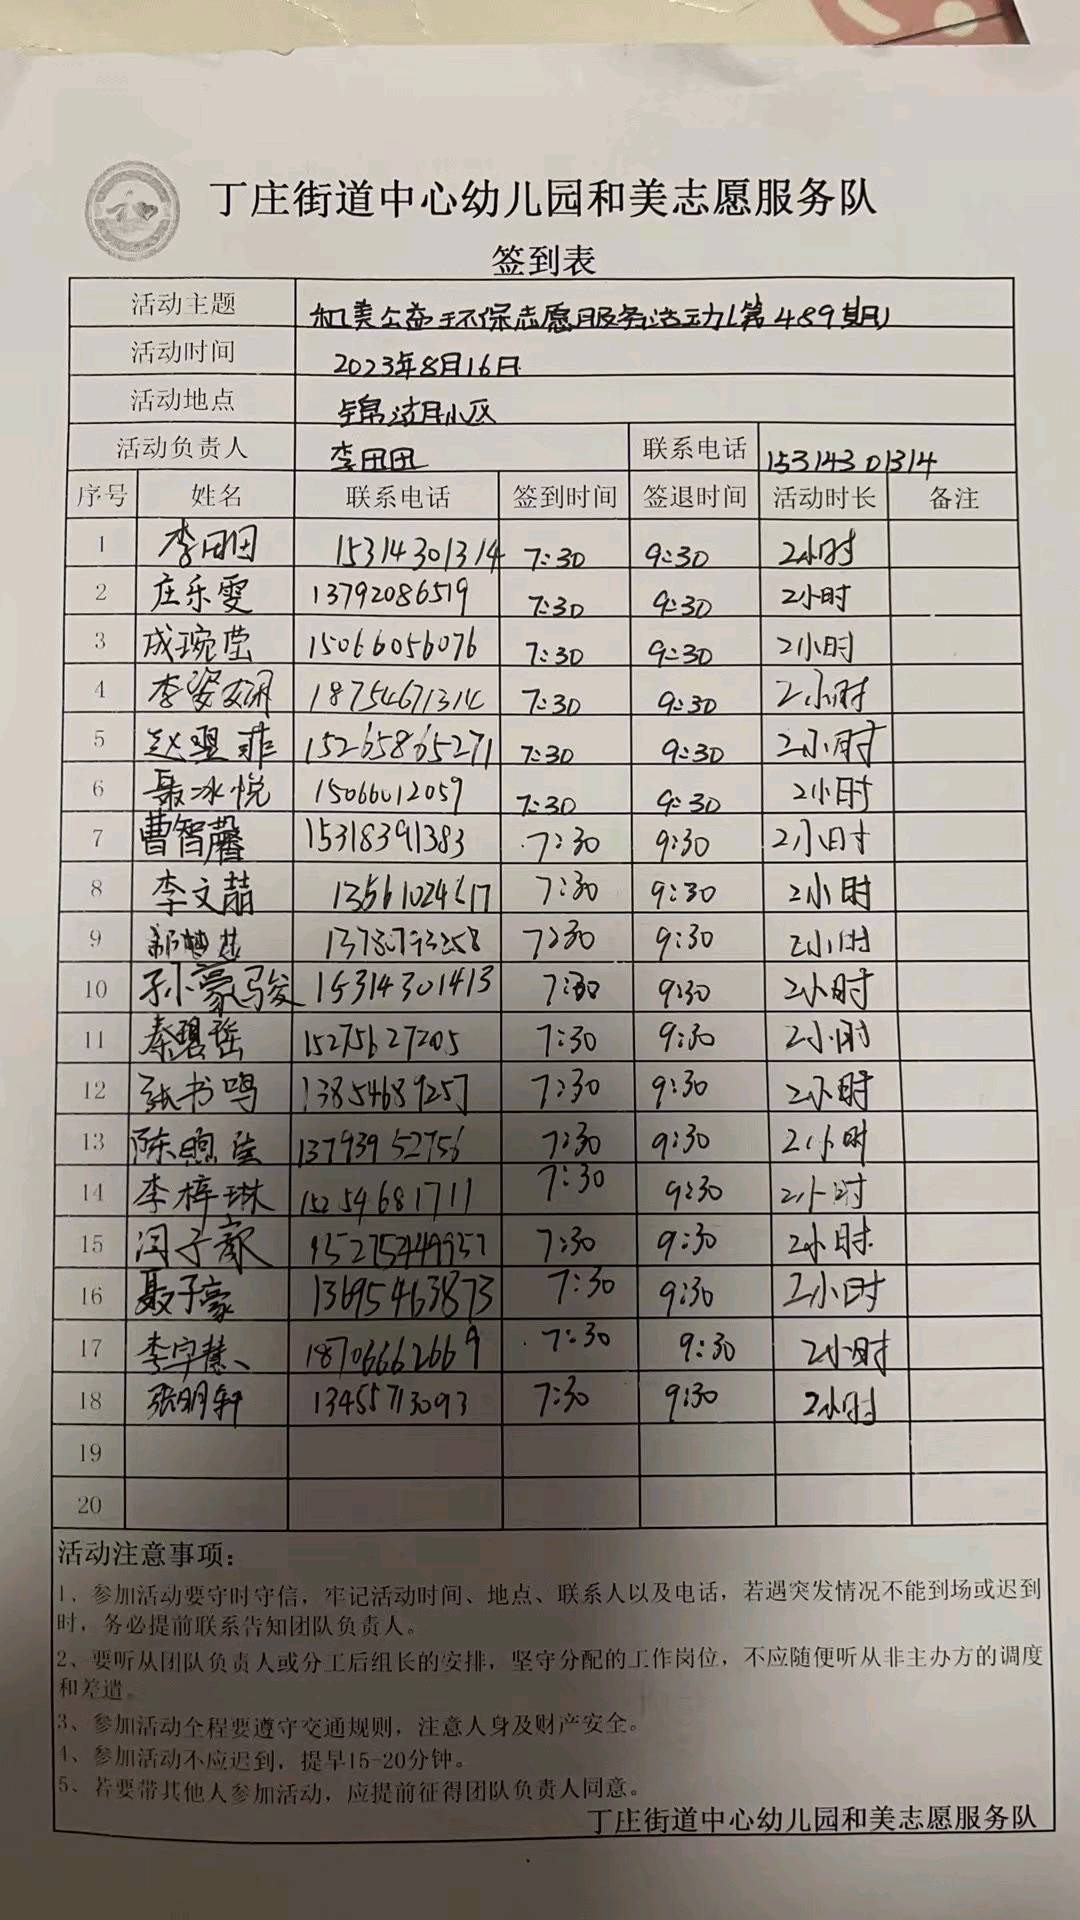 丁庄街道中心幼儿园和美志愿服务队
签到表
活动主题 和美公益环保志愿服务活动(第489期)
活动时间 2023年8月16日
活动地点 锦湖小区
活动负责人 李田田 联系电话 15314301314
序号 姓名 联系电话 签到时间 签退时间 活动时长 备注
1 李田田 15314301314 7:30 9:30 2小时
2 庄乐雯 13792086519 7:30 9:30 2小时
3 成琬莹 15066056076 7:30 9:30 2小时
4 李姿娴 18754671314 7:30 9:30 2小时
5 赵 菲 15265865271 7:30 9:30 2小时
6 聂冰悦 15066012059 7:30 9:30 2小时
7 曹智馨 15318391383 7:30 9:30 2小时
8 李文喆 13561024617 7:30 9:30 2小时
9 7:30 9:30 2小时
10 孙豪骏 15314301413 7:30 9:30 2小时
11 秦碧瑶 15275627205 7:30 9:30 2小时
12 张书鸣 13854689257 7:30 9:30 2小时
13 陈 13793952756 7:30 9:30 2小时
14 李梓琳 15254681711 7:30 9:30 2小时
15 闫子歌 7:30 9:30 2小时
16 聂子豪 13695463873 7:30 9:30 2小时
17 李宇慧 18706662669 7:30 9:30 2小时
18 张明轩 13455713093 7:30 9:30 2小时
19
20
活动注意事项:
1、参加活动要守时守信，牢记活动时间、地点、联系人以及电话，若遇突发情况不能到场或迟到
时，务必提前联系告知团队负责人。
2、要听从团队负责人或分工后组长的安排，坚守分配的工作岗位，不应随便听从非主办方的调度
和差遣。
3、参加活动全程要遵守交通规则，注意人身及财产安全。
4、参加活动不应迟到，提早15-20分钟。
5、若要带其他人参加活动，应提前征得团队负责人同意。
丁庄街道中心幼儿园和美志愿服务队